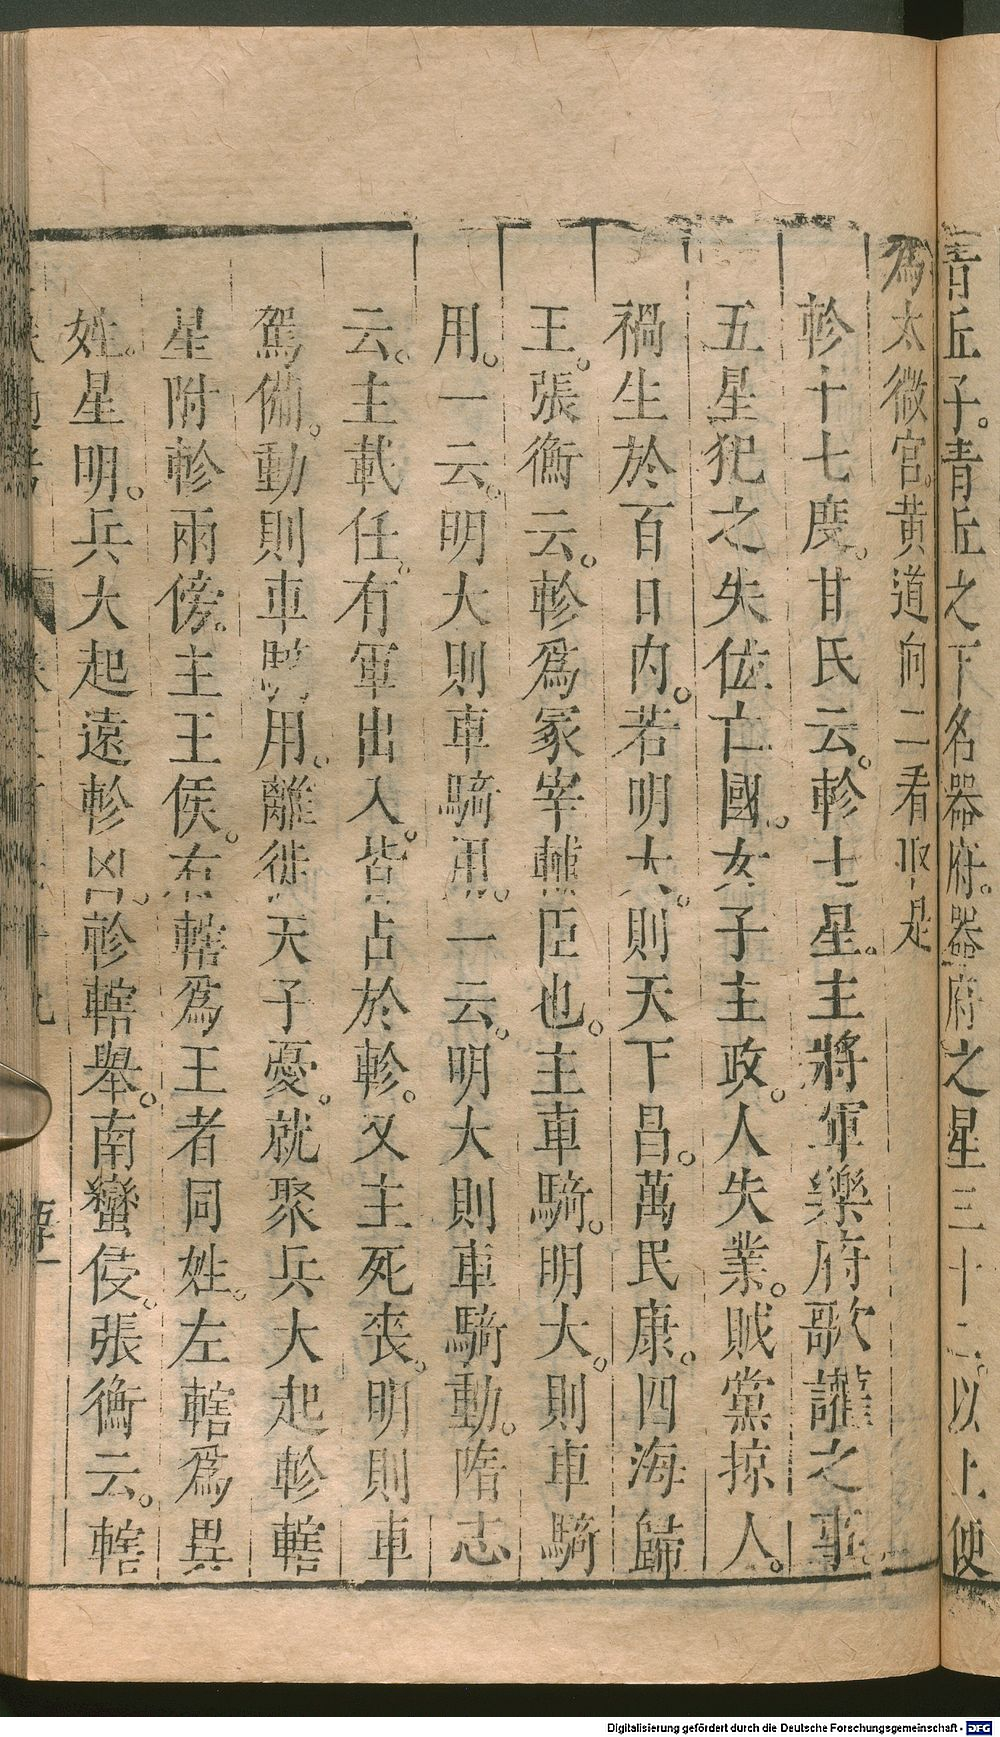 青丘子。青丘之下名器府。器府之星三十二。以上便
爲太微宮。黃道向二看取是
軫十七度。甘氏云。軫七星。主將軍樂府歌讙之事。
五星犯之失位亡國。女子主政。人失業。賊黨掠人。
禍生於百日內。若明大。則天下昌。萬民康。四海歸
王。張衡云。軫爲冢宰輔臣也。主車騎。明大。則車騎
用。一云。明大則車騎用。一云。明大則車騎動。隋志
云。主載任。有軍出入。皆占於軫。又主死喪。明則車
駕備。動則車騎用。離徙天子憂。就聚兵大起軫轄
星附軫兩傍。主王侯。右轄爲王者同姓。左轄爲異
姓。星明。兵大起遠軫凶。軫轄舉。南蠻侵。張衡云。轄
Digitalisierung gefördert durch die Deutsche Forschungsgemeinschaft - DFG